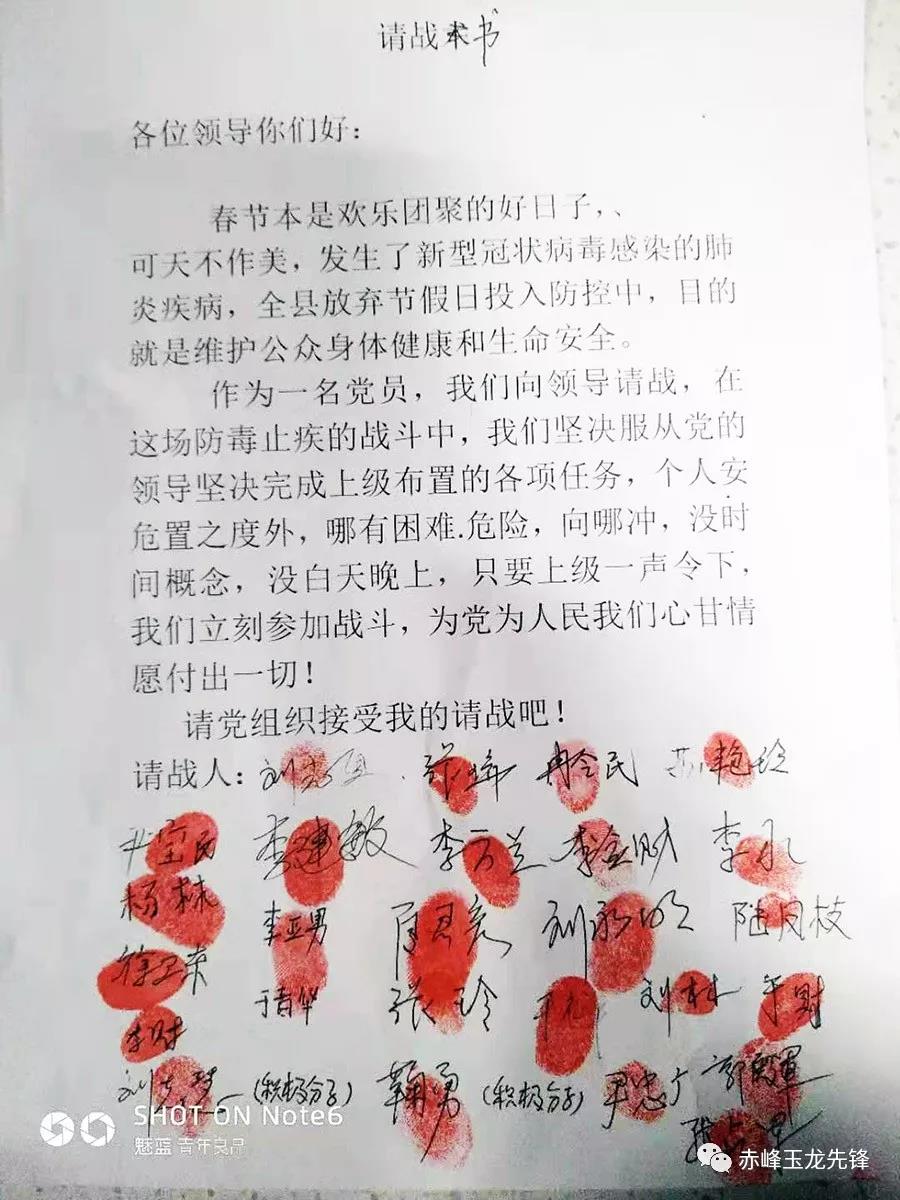 请战书
各位领导你们好：
春节本是欢乐团聚的好日子，、
可天不作美，发生了新型冠状病毒感染的肺
炎疾病，全县放弃节假日投入防控中，目的
就是维护公众身体健康和生命安全。
作为一名党员，我们向领导请战，在
这场防毒止疾的战斗中，我们坚决服从党的
领导坚决完成上级布置的各项任务，个人安
危置之度外，哪有困难.危险，向哪冲，没时
间概念，没白天晚上，只要上级一声令下，
我们立刻参加战斗，为党为人民我们心甘情
愿付出一切！
请党组织接受我的请战吧！
请战人： 张峰 冉令民 苏艳玲
尹宝民 李建敏 李万兰 李金财 李永
杨林 李亚男 刘永明 陆凤枝
徐卫东 于春华 张玲 刘林 于财
李财
(积极分子) 鞠勇 (积极分子) 尹忠广
SHOT ON Note6
魅蓝 青年良品
赤峰玉龙先锋